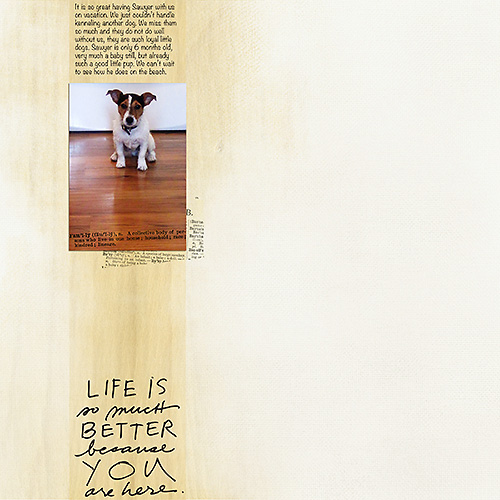 It is so great having Sawyer with us
on vacation. We just couldn't handle
kenneling another dog. We miss them
so much and they do not do well
without us, they are such loyal little
dogs. Sawyer is only 6 months old,
very much a baby still, but already
such a good little pup. We can't wait
to see how he does on the beach.
B.
fam'i-ly (făm'ĭ-lў), n. A collective body of per-
sons who live in one house; household; race;
kindred; lineage.
LIFE IS
so much
BETTER
because
YOU
are here.